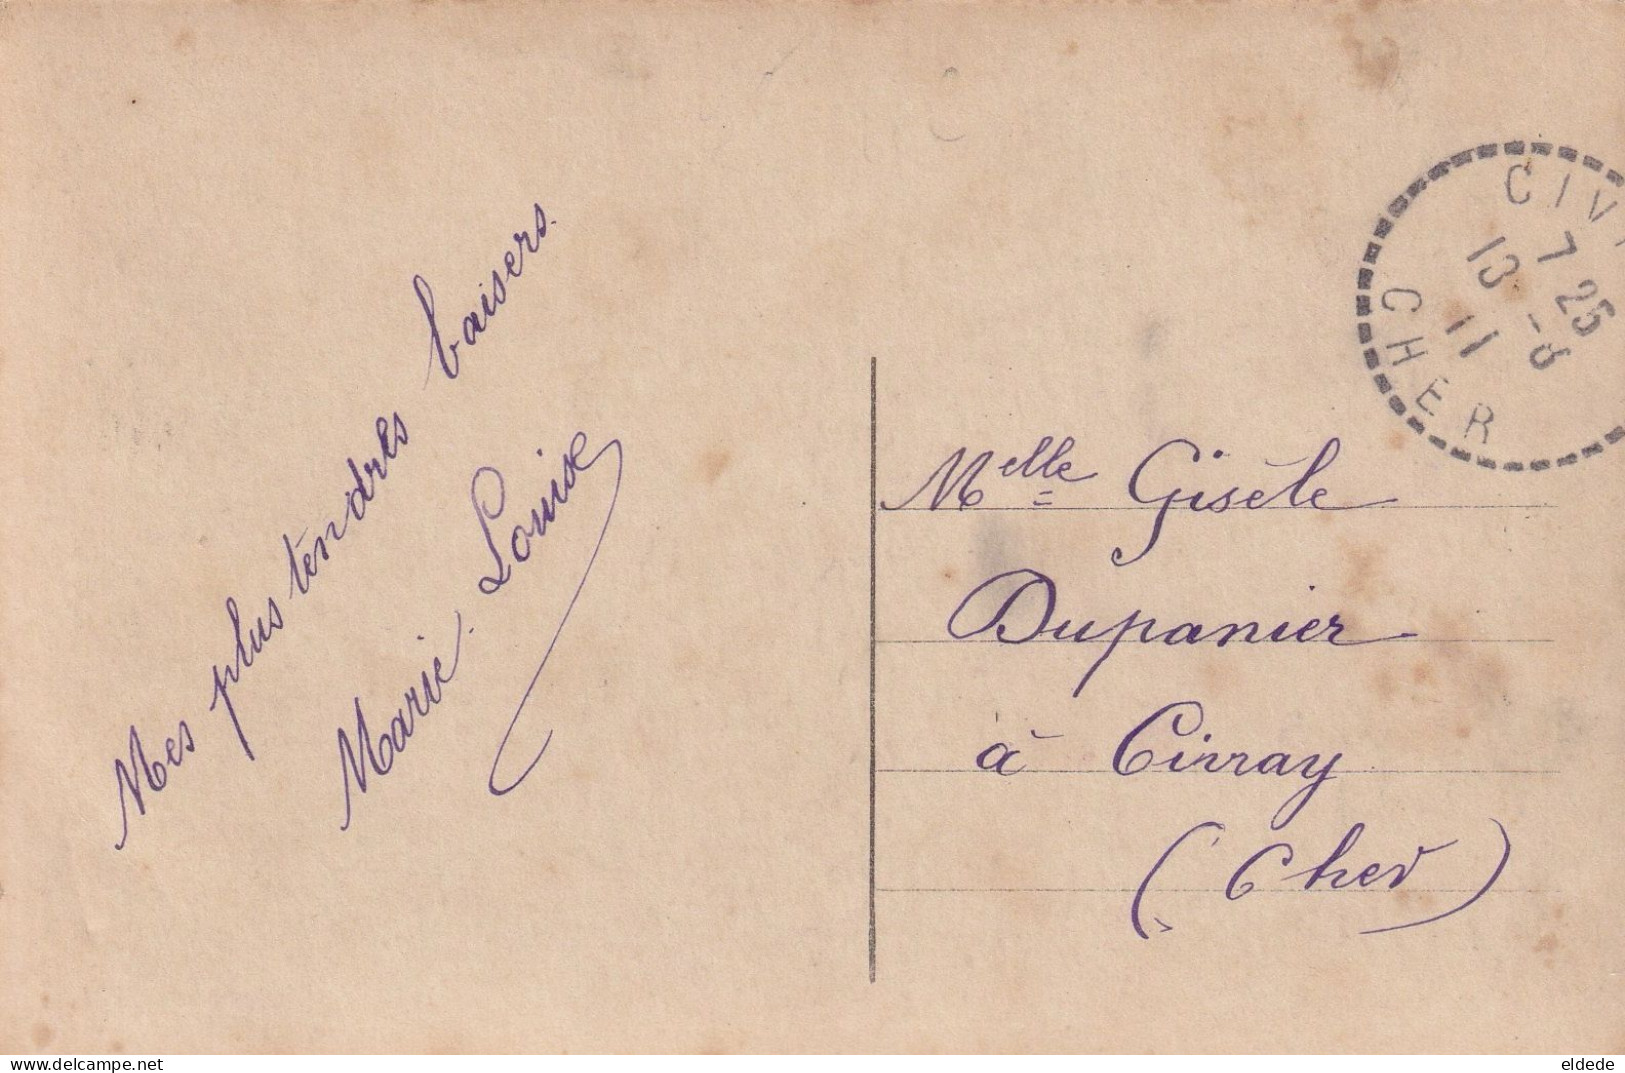 Mes plus tendres baisers.
Marie. Louise
CIV
7 25
13 -8
11
CHER
Melle Gisèle
Dupanier
à Civray
(Cher)
delcampe.net
eldede